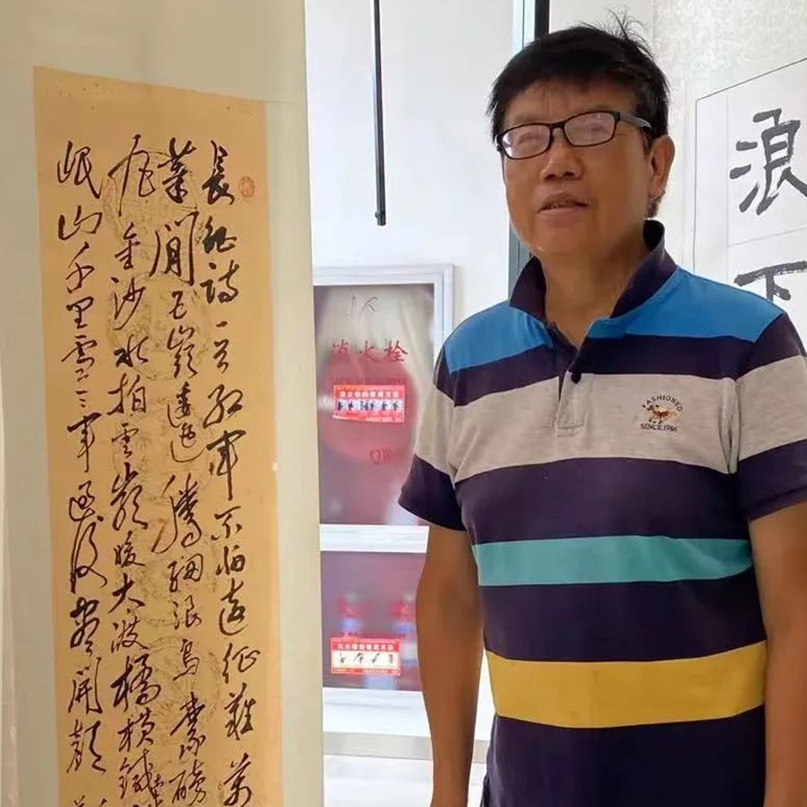 長征詩一首紅軍不怕遠征難萬
等閒五嶺逶迤騰細浪烏蒙磅
丸金沙水拍雲崖暖大渡橋橫鐵
岷山千里雪三軍過後盡開顏
消火栓
浪下
SINCE 1986